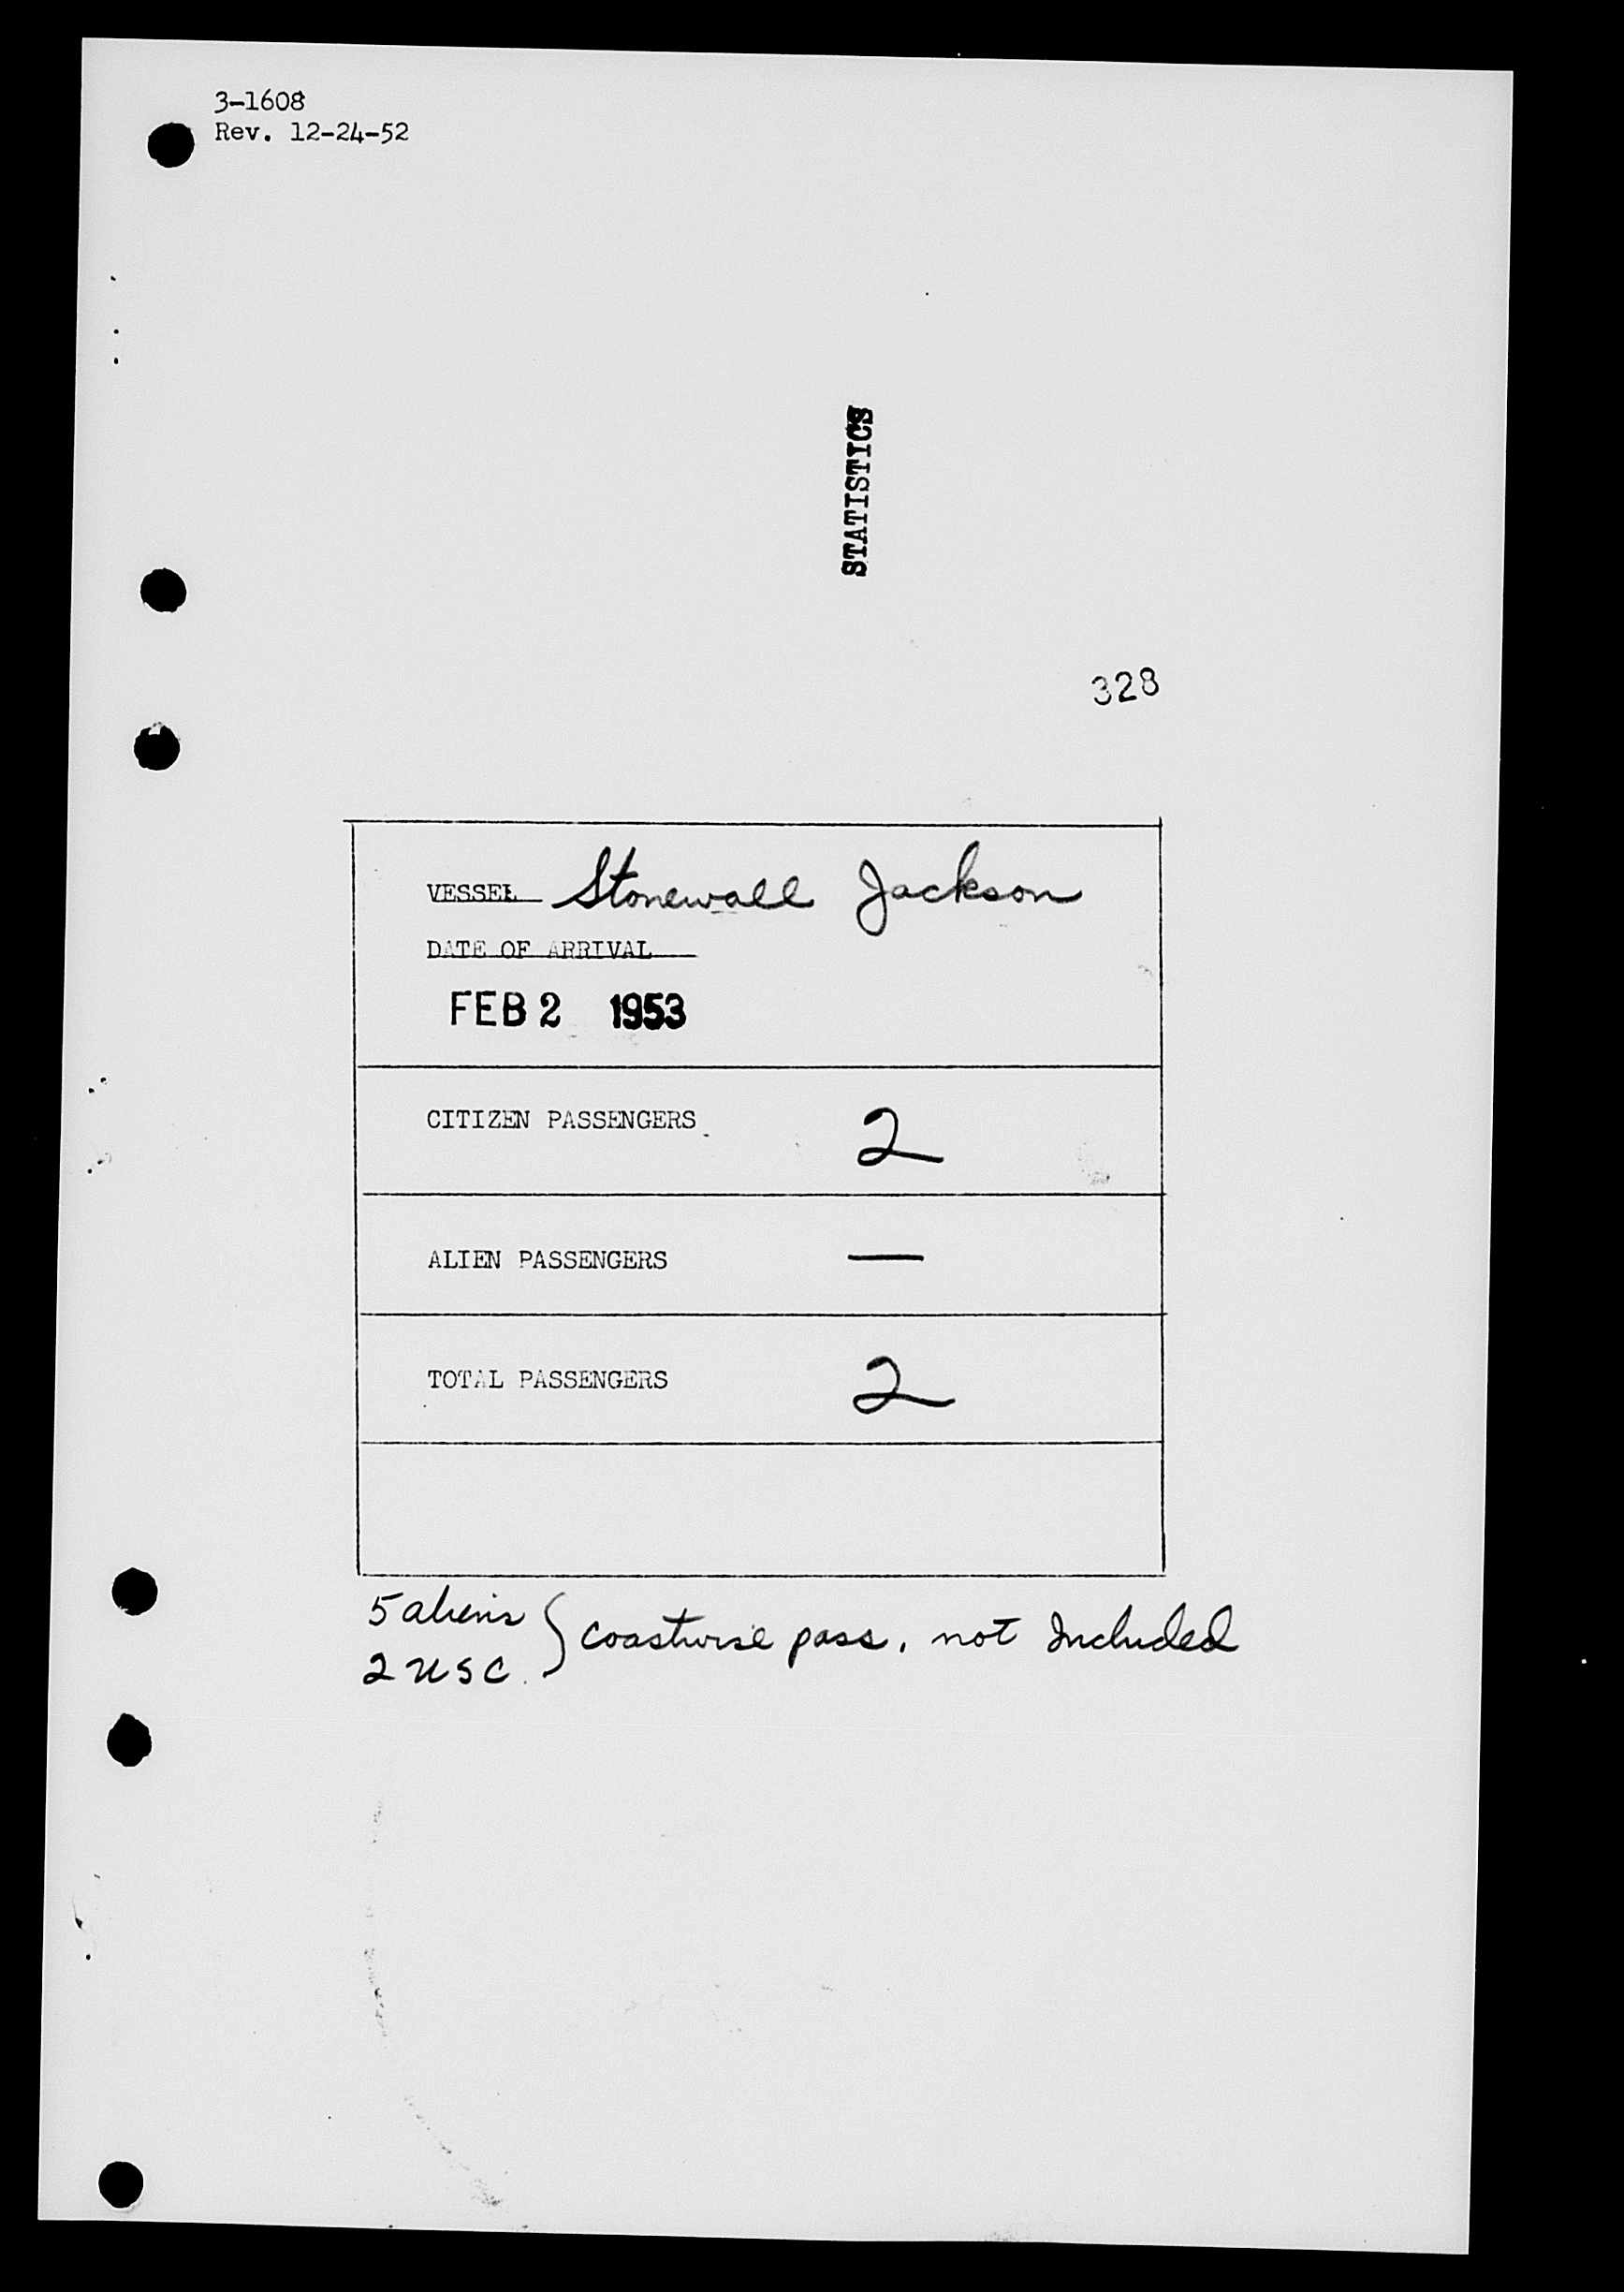 3-1608
Rev. 12-24-52
STATISTICS
328
VESSEL Stonewall Jackson
DATE OF ARRIVAL
FEB 2 1953
CITIZEN PASSENGERS 2
ALIEN PASSENGERS —
TOTAL PASSENGERS 2
5 aliens } coastwise pass. not Included
2 USC.